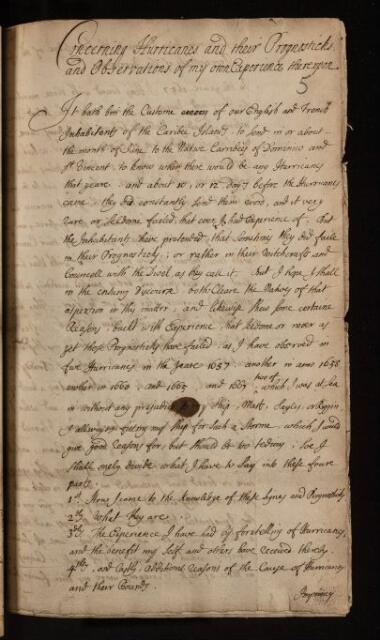 Concerning Hurricanes and their Prognosticks
and Observations of my own Experience thereupon
5
It hath bin the Custome of our English and French
Inhabitants of the Caribee Islands to send in or about
the month of June to the Native Carribies of Dominico and
St Vincent, to know whether there would be any Hurricanes
that yeare, and about 10, or 12 Days before the Hurricanes
came they did constantly send them word, and it very
rare, or Seldome failed, that ever I had Experience of. But
the Inhabitants have pretended that sometimes they did faile
in their Prognosticks, or rather in their Witchcrafts and
Councells with the Divel, as they call it. but I hope I shall
in the ensuing Discourse both Cleare the Natives of that
aspersion in this matter, and likewise shew some certaine
Reasons, built with Experience that Seldome or never as
yet these Prognosticks have failed, as I have observed in
five Hurricanes in the yeare 1657, another in anno 1658
another in 1660, and 1665 and 1667 two of which, I was at Sea
in without any prejudice my Ship, Mast, Sayles, or Rigging
I allwayes fitting my Ship for such a Storme, which I would
give good reasons for, but should be too tedious; Soe I
shall onely devide what I have to say into these foure
parts.
1st. How I came to the knowledge of these Signes and Prognosticks
2dly What they are
3dly The Experience I have had by foretelling of Hurricanes,
and the benefit my self and others have received thereby
4thly, and lastly, additional reasons of the Cause of Hurricanes
and their Bounds.